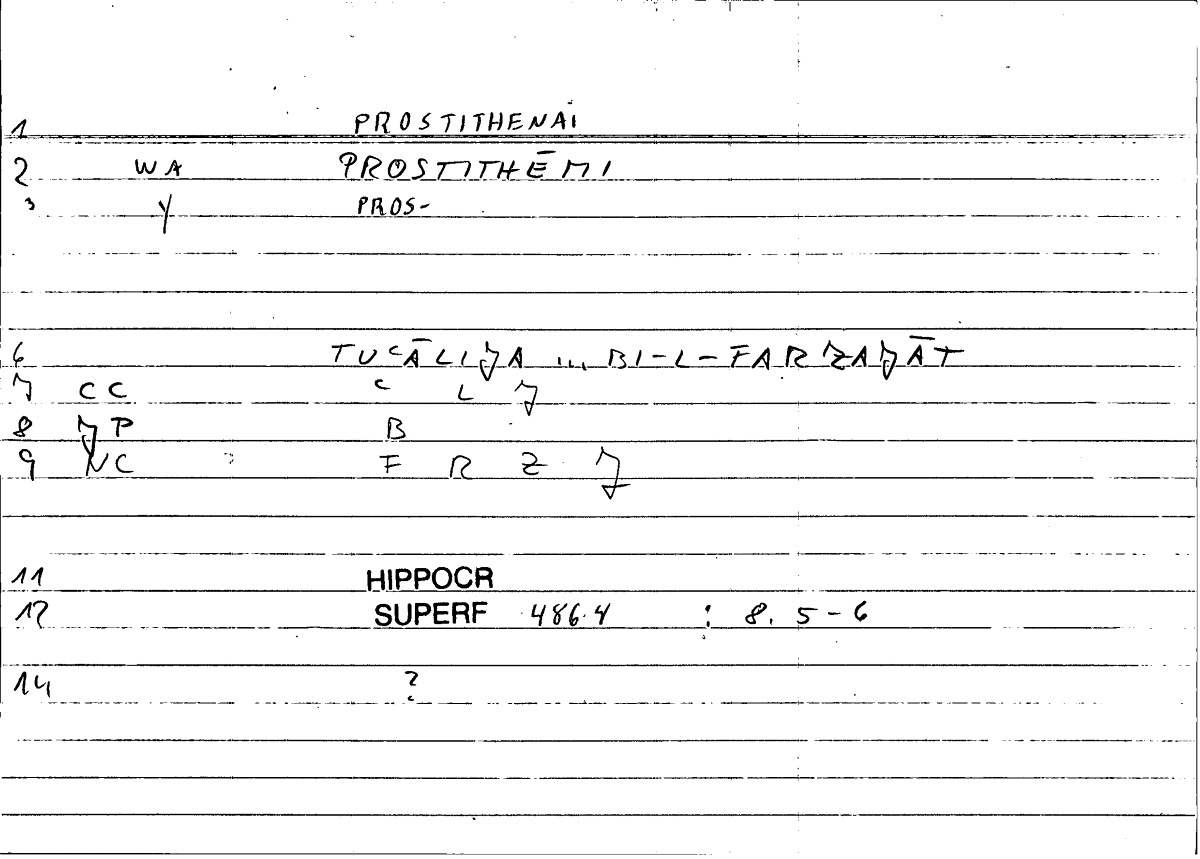 1 PROSTITHENAI
2 WA PROSTITHĒMI
3 Y PROS-
6 TUʿĀLIJA ... BI-L-FARZAJĀT
7 CC ʿ L J
8 JP B
9 NC F R Z J
11 HIPPOCR
12 SUPERF 486.4 : 8. 5-6
14 ?